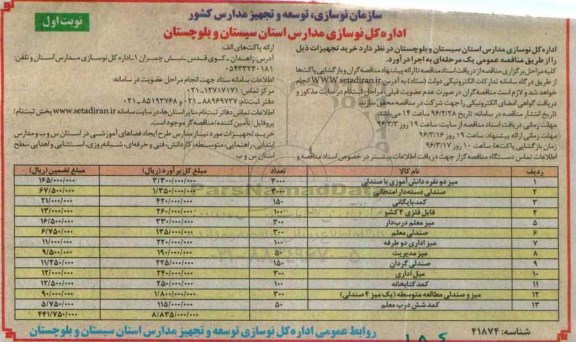 سازمان نوسازی، توسعه و تجهیز مدارس کشور
اداره کل نوسازی مدارس استان سیستان و بلوچستان
نوبت اول
اداره کل نوسازی مدارس استان سیستان و بلوچستان در نظر دارد خرید تجهیزات ذیل
را از طریق مناقصه عمومی یک مرحله‌ای به اجرا درآورد.
کلیه مراحل برگزاری مناقصه از دریافت اسناد مناقصه تا ارائه پیشنهاد مناقصه گران و بازگشایی پاکت‌ها
از طریق درگاه سامانه تدارکات الکترونیکی دولت (ستاد) به آدرس WWW.setadiran.ir انجام
خواهد شد و لازم است مناقصه گران در صورت عدم عضویت قبلی، مراحل ثبت‌نام در سایت مذکور و
دریافت گواهی امضای الکترونیکی را جهت شرکت در مناقصه محقق سازند.
تاریخ انتشار مناقصه در سامانه: تاریخ ۹۶/۲/۲۸ ساعت ۱۴ می‌باشد.
مهلت زمانی دریافت اسناد مناقصه از سایت: ساعت ۱۹ روز ۹۶/۳/۳
مهلت زمانی ارائه پیشنهاد: ساعت ۱۹ روز ۹۶/۳/۱۶
زمان بازگشایی پاکت‌ها: ساعت ۱۰ روز ۹۶/۳/۱۷
اطلاعات تماس دستگاه مناقصه گزار جهت دریافت اطلاعات بیشتر در خصوص اسناد مناقصه و
ارائه پاکت‌های الف:
آدرس: زاهدان ـ کوی قدس ـ نبش چمران ۱ـ اداره کل نوسازی مدارس استان و تلفن:
۰۵۴۳۳۲۳۰۱۸۱
اطلاعات سامانه ستاد جهت انجام مراحل عضویت در سامانه:
مرکز تماس: ۲۷۳۱۳۱۳۱ـ۰۲۱
دفتر ثبت‌نام: ۸۸۹۶۹۷۳۷ـ۰۲۱ و ۸۵۱۹۳۷۶۸ـ۰۲۱
اطلاعات تماس دفاتر ثبت‌نام سایر استان‌ها، در سایت سامانه www.setadiran.ir بخش ثبت‌نام/
پروفایل تأمین کننده/مناقصه گر موجود است.
خرید تجهیزات مورد نیاز مدارس طرح ایجاد فضاهای آموزشی در استان س وب و مدارس
ابتدایی، راهنمایی، متوسطه، کاردانش، فنی و حرفه‌ای، شبانه‌روزی، استثنایی و اهایی سطح
استان س وب
ردیف نام کالا تعداد مبلغ کل برآورد (ریال) مبلغ تضمین (ریال)
۱ میز دو نفره دانش آموزی با صندلی ۳۰۰۰ ۳/۳۰۰/۰۰۰/۰۰۰ ۱۶۵/۰۰۰/۰۰۰
۲ صندلی دسته‌دار امتحانی ۳۰۰۰ ۱/۳۵۰/۰۰۰/۰۰۰ ۶۷/۵۰۰/۰۰۰
۳ کمد بایگانی ۱۵۰ ۴۲۰/۰۰۰/۰۰۰ ۲۱/۰۰۰/۰۰۰
۴ فایل فلزی ۴ کشو ۱۰۰ ۲۶۰/۰۰۰/۰۰۰ ۱۳/۰۰۰/۰۰۰
۵ میز معلم درب‌دار ۳۰۰ ۳۳۰/۰۰۰/۰۰۰ ۱۶/۵۰۰/۰۰۰
۶ صندلی معلم ۳۰۰ ۱۳۵/۰۰۰/۰۰۰ ۶/۷۵۰/۰۰۰
۷ میز اداری دو طرفه ۱۰۰ ۲۲۰/۰۰۰/۰۰۰ ۱۱/۰۰۰/۰۰۰
۸ میز مدیریت ۵۰ ۱۹۰/۰۰۰/۰۰۰ ۹/۵۰۰/۰۰۰
۹ صندلی گردان ۱۵۰ ۲۲۵/۰۰۰/۰۰۰ ۱۱/۲۵۰/۰۰۰
۱۰ مبل اداری ۳۰۰ ۲۴۰/۰۰۰/۰۰۰ ۱۲/۰۰۰/۰۰۰
۱۱ کمد کتابخانه ۱۰۰ ۲۵۰/۰۰۰/۰۰۰ ۱۲/۵۰۰/۰۰۰
۱۲ میز و صندلی مطالعه متوسطه (یک میز ۴ صندلی) ۳۰۰ ۱/۸۰۰/۰۰۰/۰۰۰ ۹۰/۰۰۰/۰۰۰
۱۳ کمد شش درب معلم ۵۰ ۱۱۵/۰۰۰/۰۰۰ ۵/۷۵۰/۰۰۰
۸/۸۳۵/۰۰۰/۰۰۰ ۴۴۱/۷۵۰/۰۰۰
شناسه: ۴۱۸۷۴
روابط عمومی اداره کل نوسازی توسعه و تجهیز مدارس استان سیستان و بلوچستان